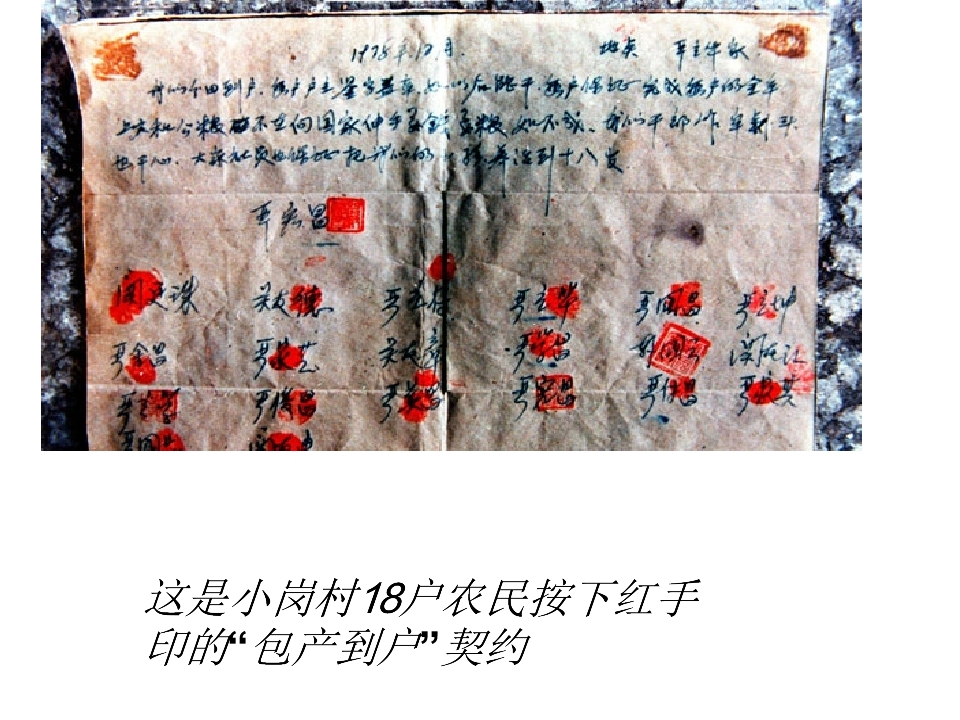 1978年12月. 地点 严立华家
我们分田到户,每户户主签字盖章,如以后能干,每户保证完成每户的全年
上交和公粮,不在向国家伸手要钱要粮,如不成,我们干部作牢刹头
也干心,大家社员也保证把我们的小孩养活到十八岁
严宏昌
关友德 严立华 严国昌 严立坤
严金昌 严家芝 关友章 严学昌 韩国云 关友江
严立学 严俊昌 严美昌 严宏昌 严付昌 严家其
这是小岗村18户农民按下红手
印的“包产到户”契约